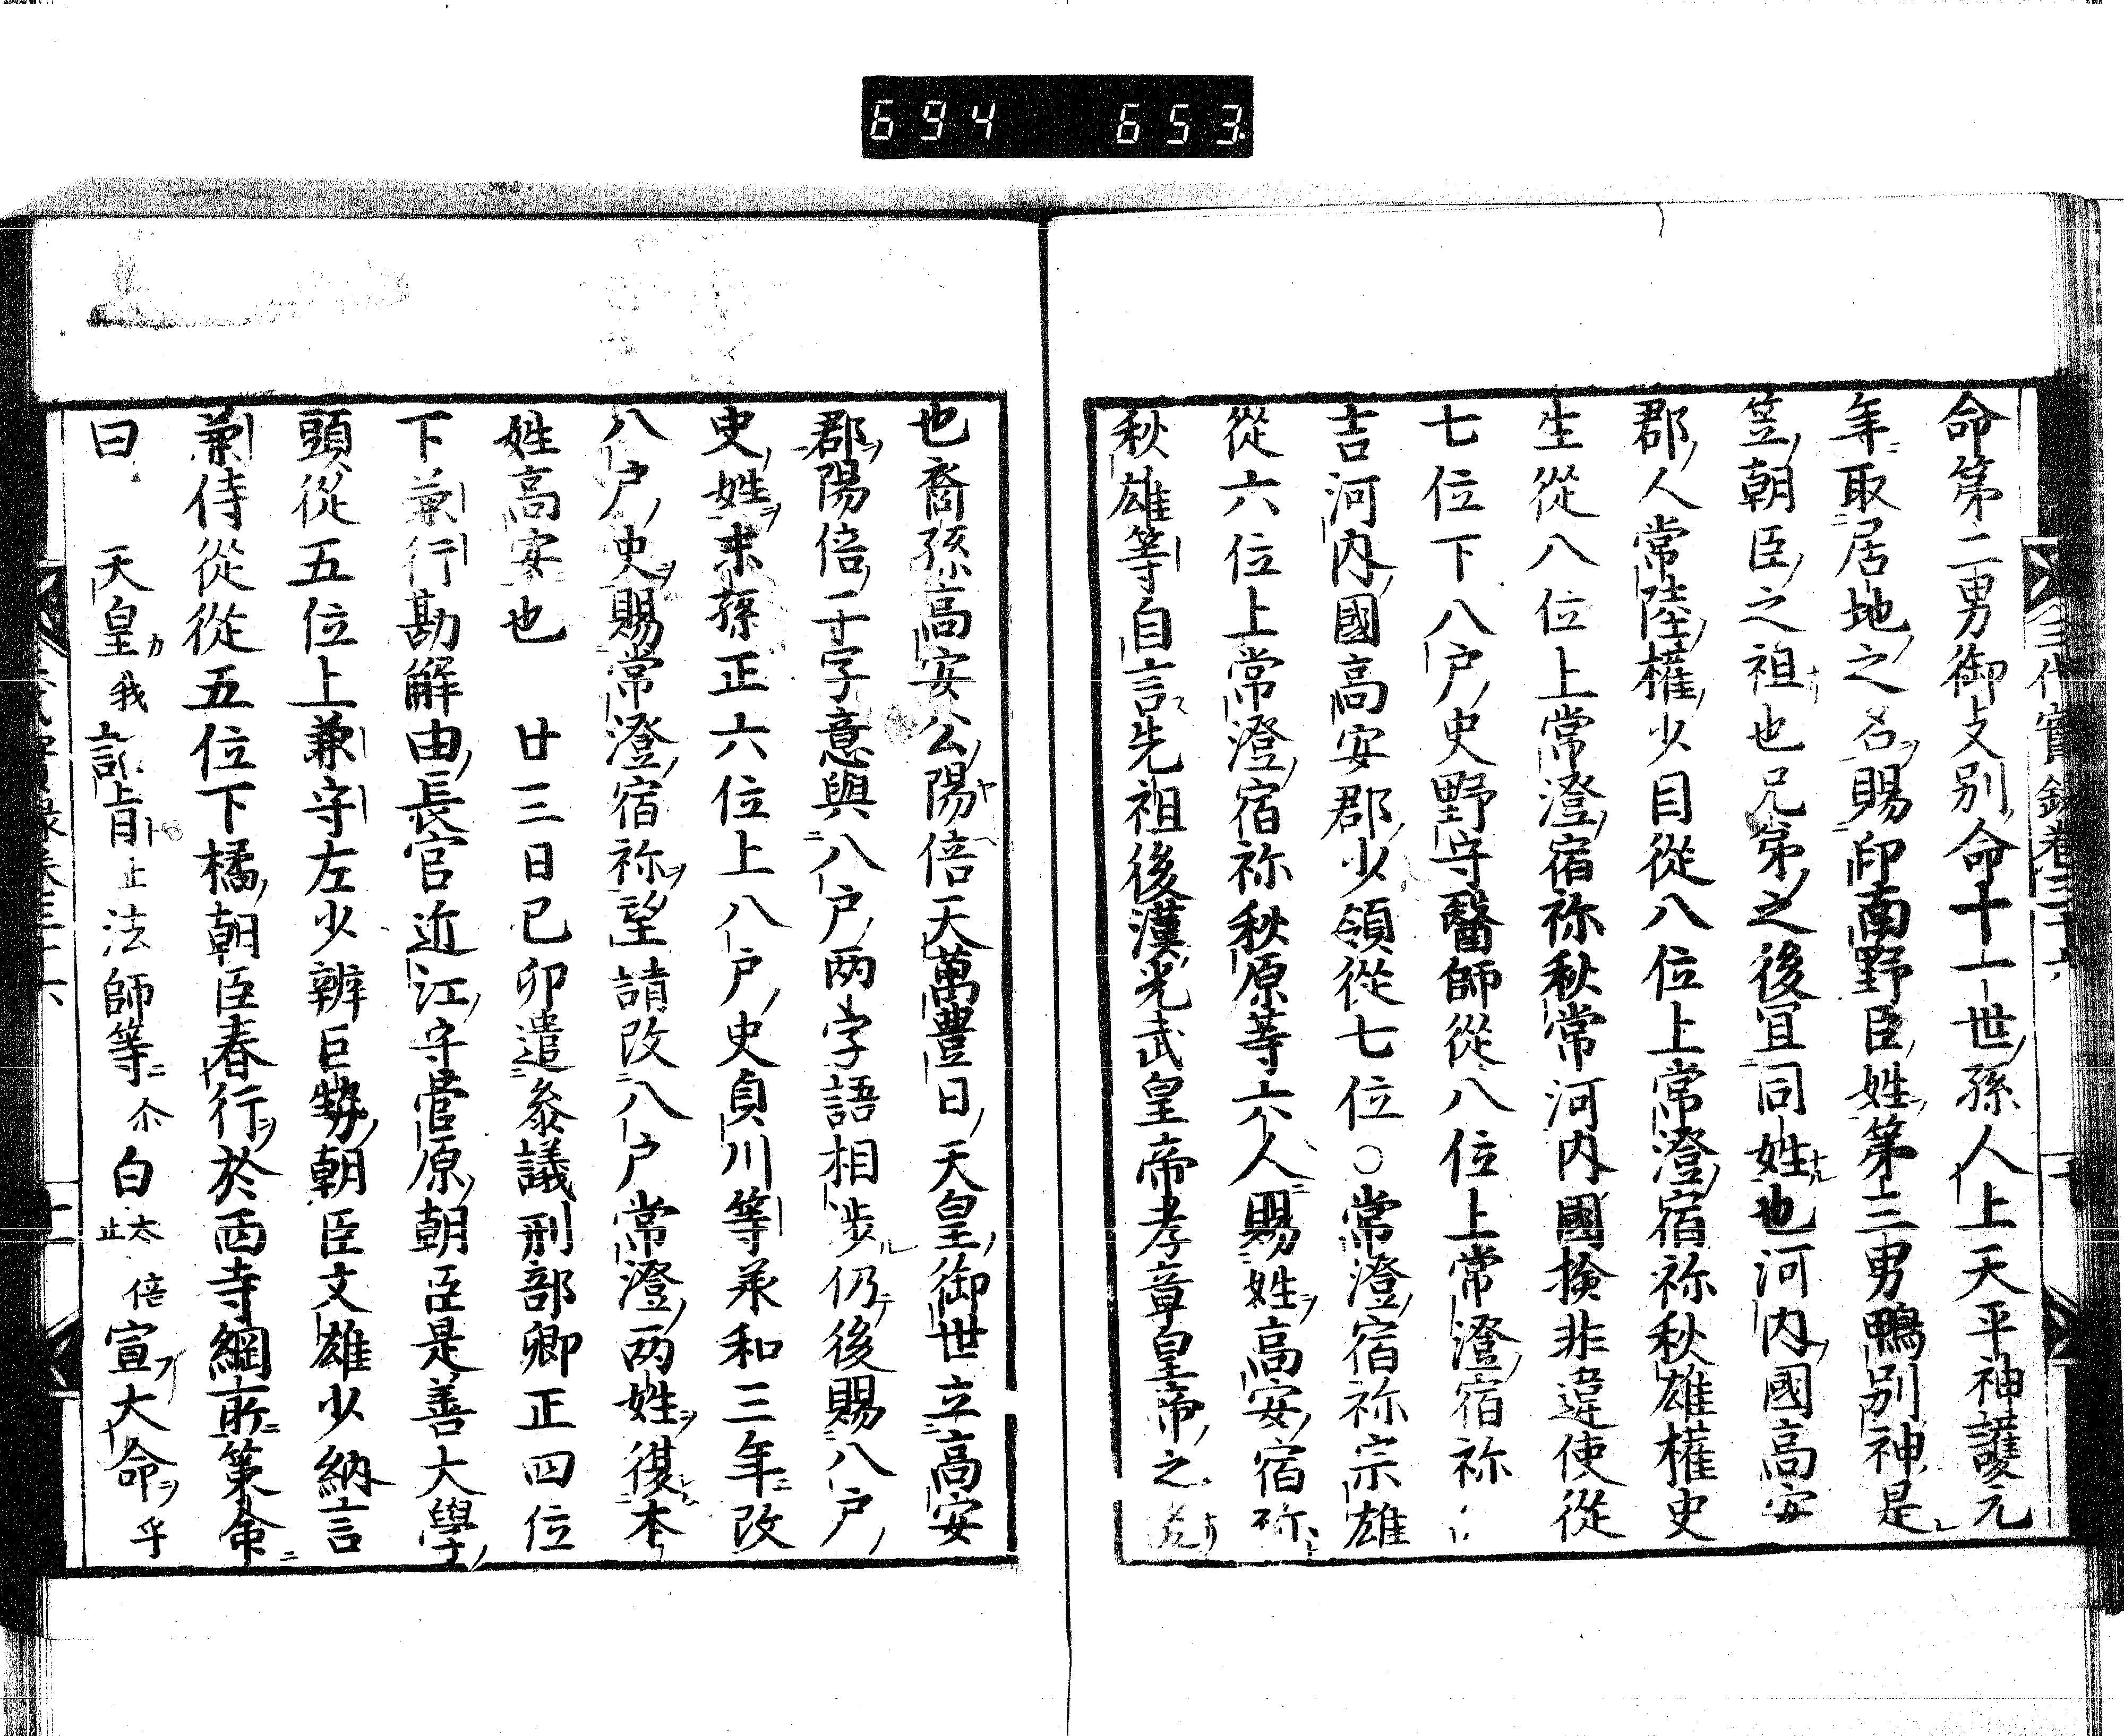 694 653
三代實録卷三十六
命第二男御友別命十一世孫人上天平神護元
年取居地之名賜印南野臣姓第三男鴨別神是
笠朝臣之祖也兄第之後宜同姓也河内國高安
郡人常陸權少目從八位上常澄宿祢秋雄權史
生從八位上常澄宿祢秋常河内國撿非違使從
七位下八户史野守醫師從八位上常澄宿祢
吉河内國高安郡少領從七位○常澄宿祢宗雄
從六位上常澄宿祢秋原等六人賜姓高安宿祢
秋雄等自言先祖後漢光武皇帝孝章皇帝之
也裔孫高安公陽倍天萬豊日天皇御世立高安
郡陽倍二字意與八户两字語相渉仍後賜八户
史姓末孫正六位上八户史貞川等美和三年改
八户史賜常澄宿祢望請改八户常澄两姓復本
姓高安也 廿三日己卯遣叅議刑部卿正四位
下兼行勘解由長官近江守菅原朝臣是善大學
頭從五位上兼守左少辨巨勢朝臣文雄少納言
兼侍從從五位下橘朝臣春行於西寺綱所策命
曰 天皇我詔旨止法師等尓白太止倍宣大命乎